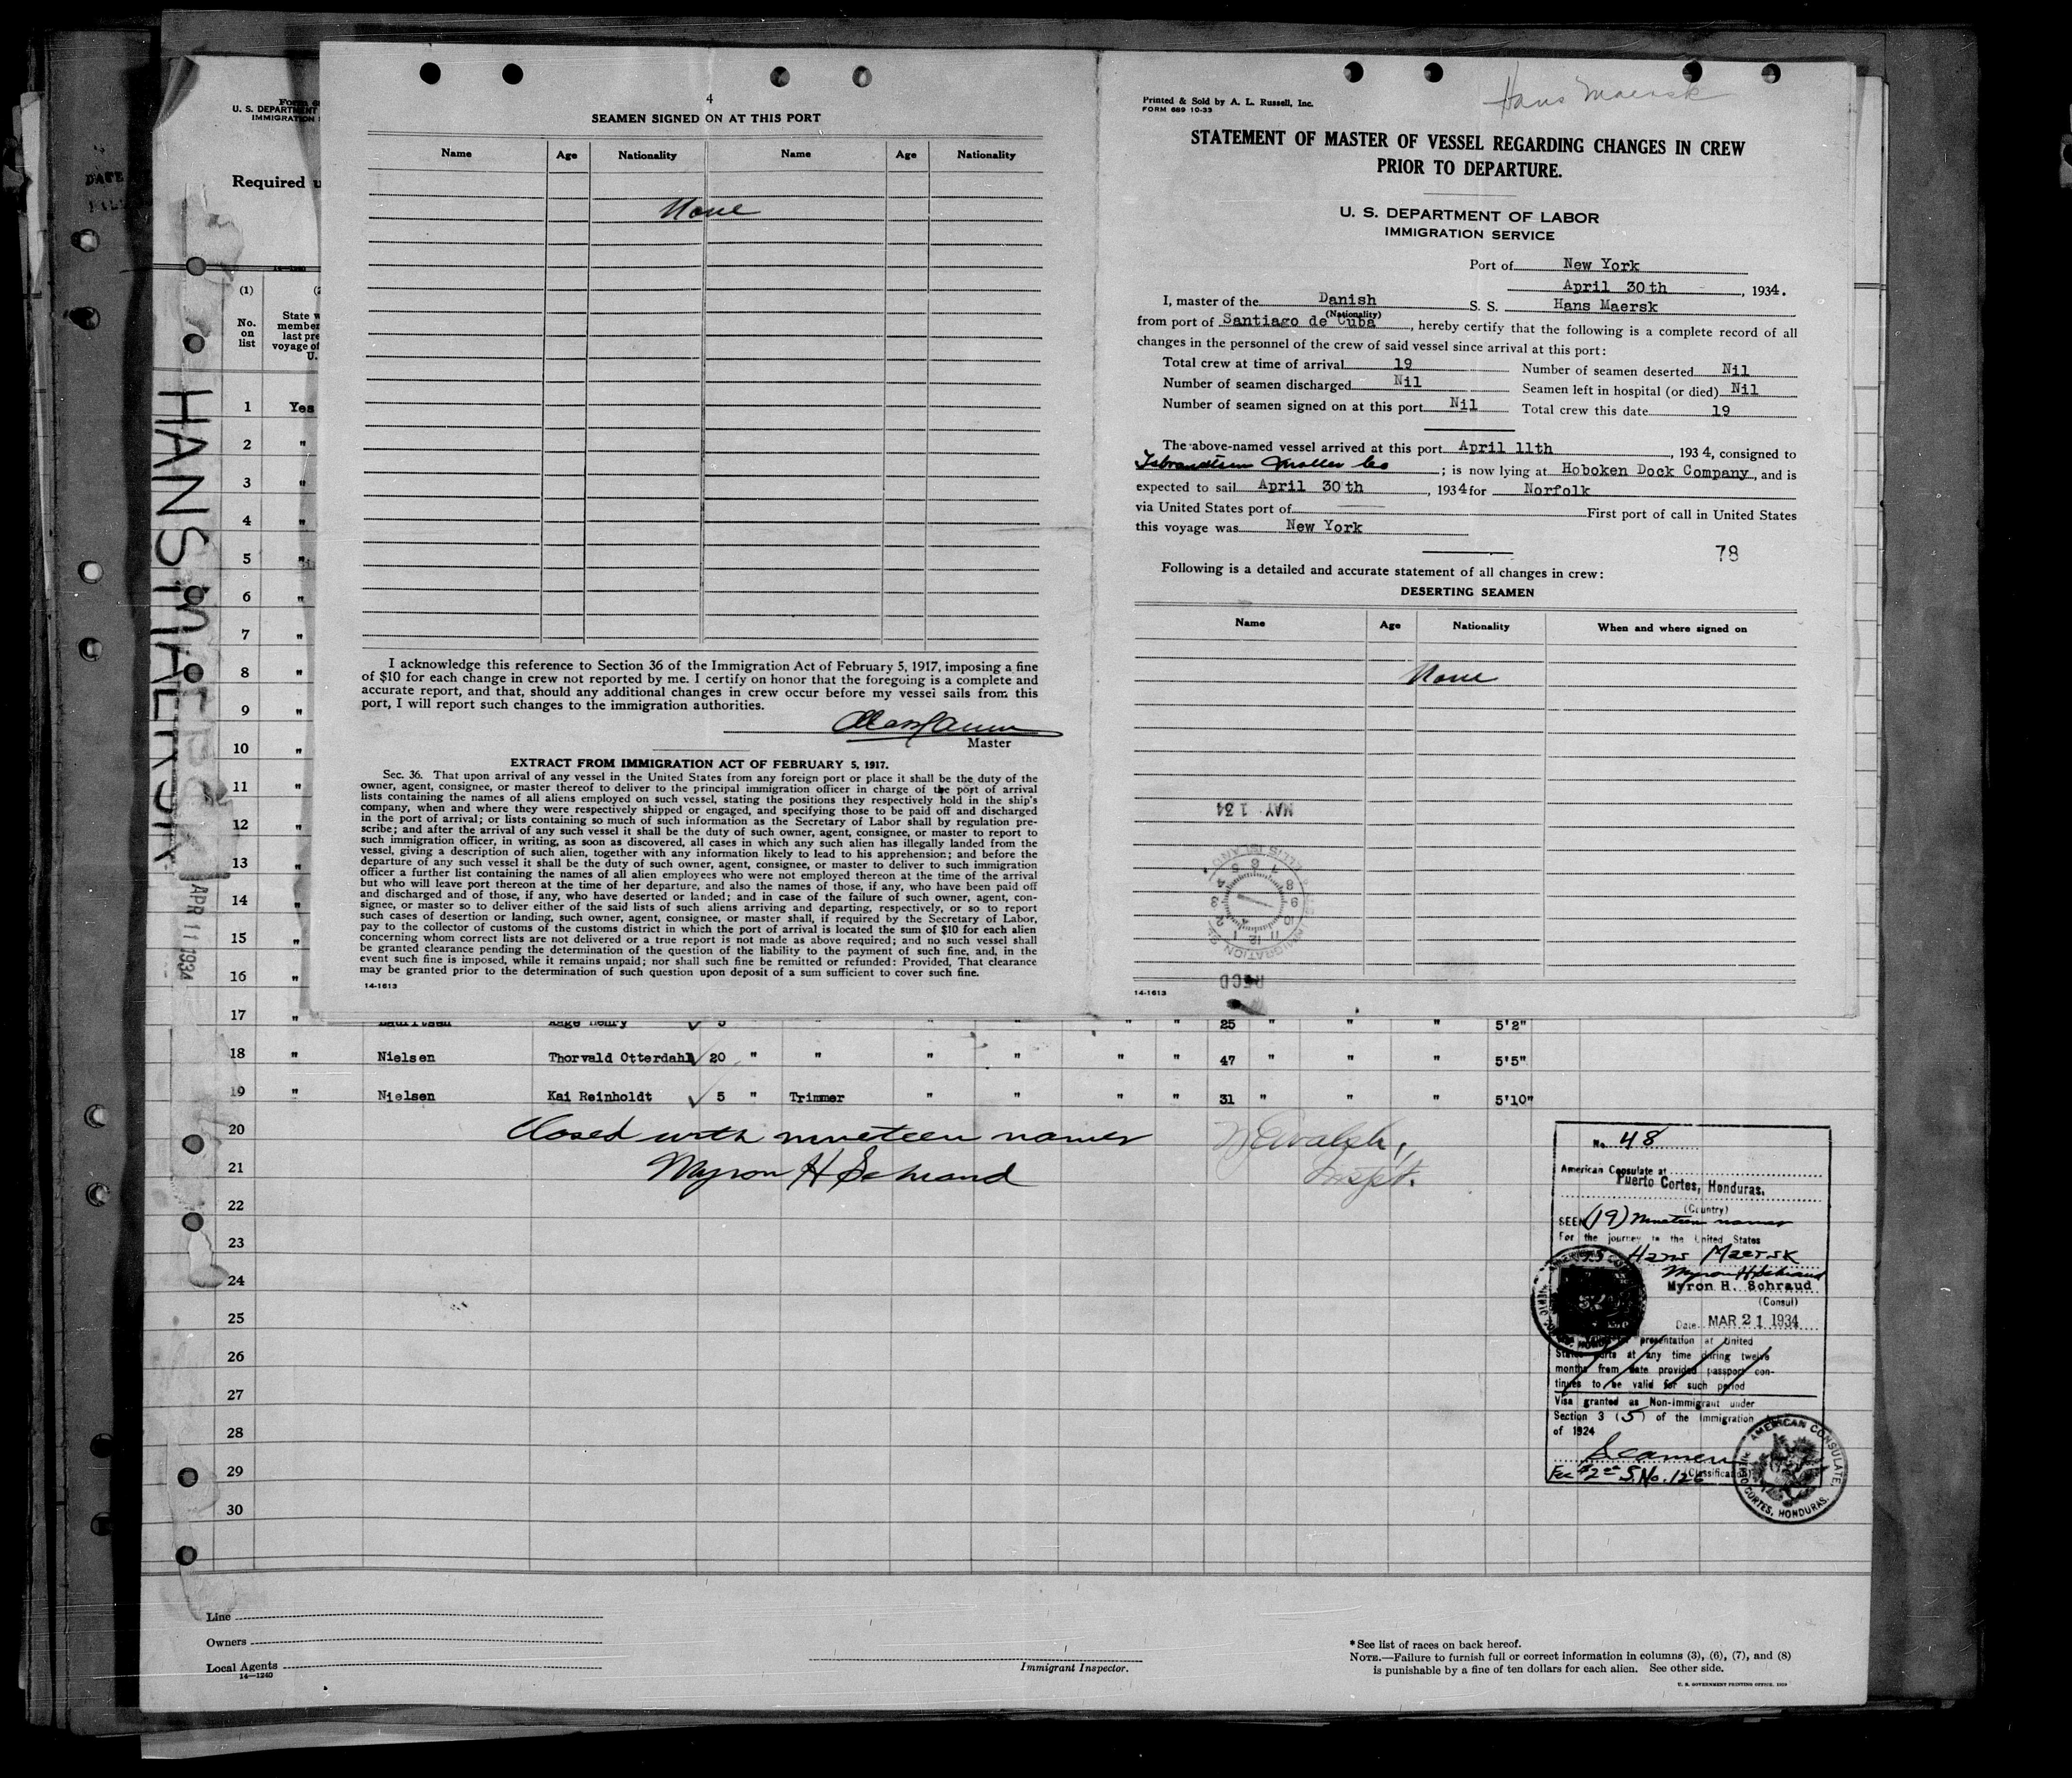 4
SEAMEN SIGNED ON AT THIS PORT
Name Age Nationality Name Age Nationality
None
I acknowledge this reference to Section 36 of the Immigration Act of February 5, 1917, imposing a fine
of $10 for each change in crew not reported by me. I certify on honor that the foregoing is a complete and
accurate report, and that, should any additional changes in crew occur before my vessel sails from this
port, I will report such changes to the immigration authorities.
Master
EXTRACT FROM IMMIGRATION ACT OF FEBRUARY 5, 1917.
Sec. 36. That upon arrival of any vessel in the United States from any foreign port or place it shall be the duty of the
owner, agent, consignee, or master thereof to deliver to the principal immigration officer in charge of the port of arrival
lists containing the names of all aliens employed on such vessel, stating the positions they respectively hold in the ship's
company, when and where they were respectively shipped or engaged, and specifying those to be paid off and discharged
in the port of arrival; or lists containing so much of such information as the Secretary of Labor shall by regulation pre-
scribe; and after the arrival of any such vessel it shall be the duty of such owner, agent, consignee, or master to report to
such immigration officer, in writing, as soon as discovered, all cases in which any such alien has illegally landed from the
vessel, giving a description of such alien, together with any information likely to lead to his apprehension; and before the
departure of any such vessel it shall be the duty of such owner, agent, consignee, or master to deliver to such immigration
officer a further list containing the names of all alien employees who were not employed thereon at the time of the arrival
but who will leave port thereon at the time of her departure, and also the names of those, if any, who have been paid off
and discharged and of those, if any, who have deserted or landed; and in case of the failure of such owner, agent, con-
signee, or master so to deliver either of the said lists of such aliens arriving and departing, respectively, or so to report
such cases of desertion or landing, such owner, agent, consignee, or master shall, if required by the Secretary of Labor,
pay to the collector of customs of the customs district in which the port of arrival is located the sum of $10 for each alien
concerning whom correct lists are not delivered or a true report is not made as above required; and no such vessel shall
be granted clearance pending the determination of the question of the liability to the payment of such fine, and, in the
event such fine is imposed, while it remains unpaid; nor shall such fine be remitted or refunded: Provided, That clearance
may be granted prior to the determination of such question upon deposit of a sum sufficient to cover such fine.
14-1613
Hans Maersk
Printed & Sold by A. L. Russell, Inc.
FORM 689 10-33
STATEMENT OF MASTER OF VESSEL REGARDING CHANGES IN CREW
PRIOR TO DEPARTURE.
U. S. DEPARTMENT OF LABOR
IMMIGRATION SERVICE
Port of New York
April 30th, 1934.
I, master of the Danish S. S. Hans Maersk
(Nationality)
from port of Santiago de Cuba, hereby certify that the following is a complete record of all
changes in the personnel of the crew of said vessel since arrival at this port:
Total crew at time of arrival 19 Number of seamen deserted Nil
Number of seamen discharged Nil Seamen left in hospital (or died) Nil
Number of seamen signed on at this port Nil Total crew this date 19
The above-named vessel arrived at this port April 11th, 1934, consigned to
Isbrandtsen Moller Co; is now lying at Hoboken Dock Company, and is
expected to sail April 30th, 1934 for Norfolk
via United States port of First port of call in United States
this voyage was New York
78
Following is a detailed and accurate statement of all changes in crew:
DESERTING SEAMEN
Name Age Nationality When and where signed on
None
MAY 1 34
ELLIS ISLAND
REC'D
14-1613
U. S. DEPARTMENT
IMMIGRATION
Required
14-1240
(1)
No.
on
list
State
member
last
voyage of
U.
HANS MAERSK
APR 11 1934
1 Yes
2 "
3 "
4 "
5 "
6 "
7 "
8 "
9 "
10 "
11 "
12 "
13 "
14 "
15 "
16 "
17 " Lauritsen Aage Henry 5 " " " " " " 25 " " " 5'2"
18 " Nielsen Thorvald Otterdahl 20 " " " " " " 47 " " " 5'5"
19 " Nielsen Kai Reinholdt 5 " Trimmer " " " " 31 " " " 5'10"
20 Closed with nineteen names
21 Myron H Schraud
Inspt.
22
23
24
25
26
27
28
29
30
No. 48
American Consulate at
Puerto Cortes, Honduras.
(Country)
SEEN (19) Nineteen names
For the journey to the United States
SS Hans Maersk
Myron H Schraud
Myron H. Schraud
(Consul)
Date MAR 21 1934
presentation at United
States ports at any time during twelve
months from date provided passport con-
tinues to be valid for such period
Visa granted as Non-Immigrant under
Section 3 (5) of the Immigration
of 1924
Seamen
(Classification)
Fee $2 S.No. 126
AMERICAN CONSULATE
CORTES, HONDURAS.
Line
Owners
Local Agents
14-1240
Immigrant Inspector.
* See list of races on back hereof.
NOTE.—Failure to furnish full or correct information in columns (3), (6), (7), and (8)
is punishable by a fine of ten dollars for each alien. See other side.
U. S. GOVERNMENT PRINTING OFFICE, 1929